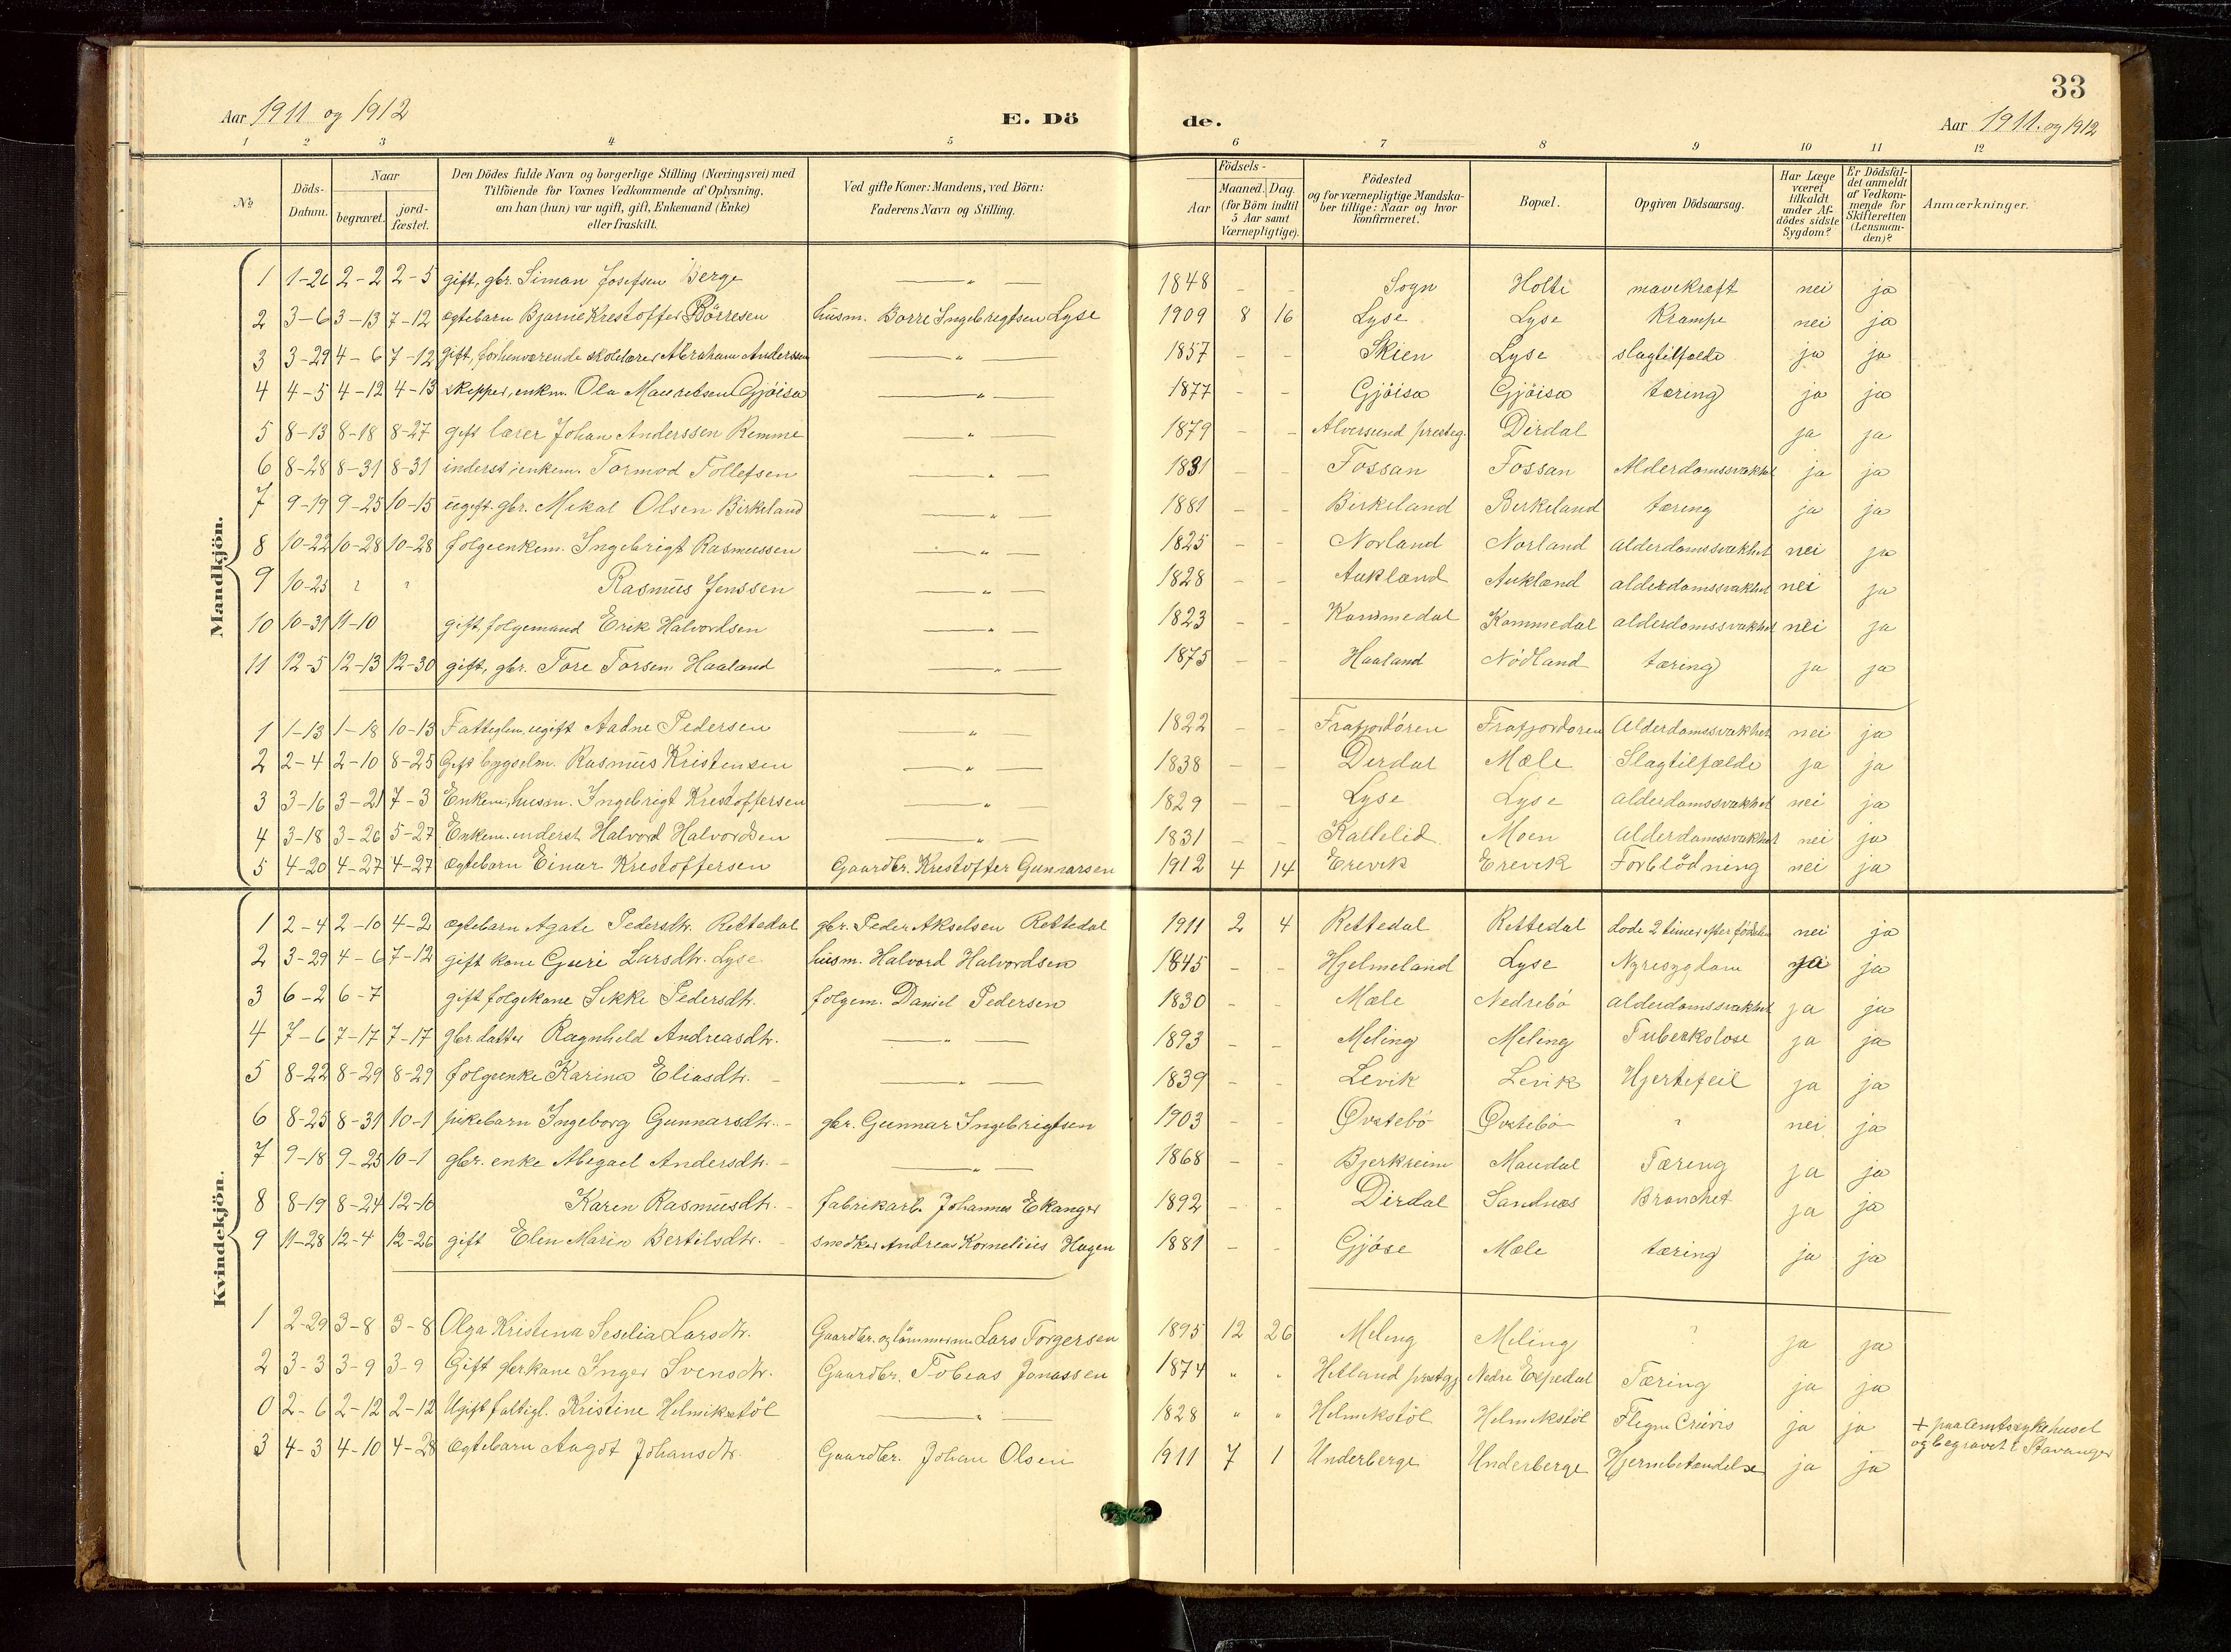 33
Aar 1911 og 1912 E. Dö de. Aar 1911. og 1912
1 2 3 4 5 6 7 8 9 10 11 12
№
Döds-Datum.
Naar
begravet.
jord-fæstet.
Den Dödes fulde Navn og borgerlige Stilling (Næringsvei) med
Tilföiende for Voxnes Vedkommende af Oplysning,
om han (hun) var ugift, gift, Enkemand (Enke)
eller fraskilt.
Ved gifte Koner: Mandens, ved Börn:
Faderens Navn og Stilling.
Födsels-
Aar
Maaned. Dag.
(for Börn indtil
5 Aar samt
Værnepligtige).
Födested
og for værnepligtige Mandska-
ber tillige: Naar og hvor
konfirmeret.
Bopæl.
Opgiven Dödsaarsag.
Har Læge
været
tilkaldt
under Af-
dödes sidste
Sygdom?
Er Dödsfal-
det anmeldt
af Vedkom-
mende for
Skifteretten
(Lensman-
den)?
Anmærkninger.
Mandkjön.
1 1-26 2-2 2-5 gift, gbr. Simon Josefsen Berge —„— 1848 - - Sogn Holte mavekræft nei ja
2 3-6 3-13 7-12 ægtebarn Bjarne Krestoffer Börresen husm. Börre Ingebrigtsen Lyse 1909 8 16 Lyse Lyse Krampe nei ja
3 3-29 4-6 7-12 gift, forhenværende skolelærer Abraham Anderssen —„— 1857 - - Skien Lyse slagtilfælde ja ja
4 4-5 4-12 4-13 skipper, enkm. Ola Mauretsen Gjöisa —„— 1877 - - Gjöisa Gjöisa tæring ja ja
5 8-13 8-18 8-27 gift lærer Johan Anderssen Remme —„— 1879 - - Alversund presteg. Dirdal ja ja
6 8-28 8-31 8-31 inderst, enkem. Tormod Tollefsen —„— 1831 - - Fossan Fossan Alderdomssvakhet ja ja
7 9-19 9-25 10-15 ugift. gbr. Mikal Olsen Birkeland —„— 1881 - - Birkeland Birkeland tæring ja ja
8 10-22 10-28 10-28 folgeenkem. Ingebrigt Rasmussen —„— 1825 - - Norland Norland alderdomssvakhet nei ja
9 10-25 ? ? Rasmus Jenssen —„— 1828 - - Aukland Aukland alderdomssvakhet nei ja
10 10-31 11-10 gift, folgemand Erik Halvordsen —„— 1823 - - Kommedal Kommedal alderdomssvakhet nei ja
11 12-5 12-13 12-30 gift, gbr. Tore Torsen Haaland —„— 1875 - - Haaland Nödland tæring ja ja
1 1-13 1-18 10-13 Fattiglem, ugift Aadne Pedersen —„— 1822 - - Frafjordören Frafjordoren Alderdomssvakhet nei ja
2 2-4 2-10 8-25 Gift bygselm. Rasmus Kristensen —„— 1838 - - Derdal Mæle Slagtilfælde ja ja
3 3-16 3-21 7-3 Enkem, husm. Ingebrigt Krestoffersen —„— 1829 Lyse Lyse alderdomssvakhet nei ja
4 3-18 3-26 5-27 Enkem. inderst Halvord Halvordsen —„— 1831 - - Kallelid Moen alderdomssvakhet nei ja
5 4-20 4-27 4-27 ægtebarn Einar Krestoffersen Gaardbr. Krestoffer Gunnarsen 1912 4 14 Erevik Erevik Forblödning nei ja
Kvindekjön.
1 2-4 2-10 4-2 ægtebarn Agate Pedersdtr. Rettedal gbr. Peder Akselsen Rettedal 1911 2 4 Rettedal Rettedal dode 2 timer efter födselen nei ja
2 3-29 4-6 7-12 gift kone Guri Larsdtr. Lyse husm. Halvord Halvordsen 1845 - - Hjelmeland Lyse Nyresygdom ja ja
3 6-2 6-7 gift folgekone Sikke Pedersdtr. folgem. Daniel Pedersen 1830 - - Mæle Nedrebö alderdomssvakhet ja ja
4 7-6 7-17 7-17 gbr. datter Ragnhild Andreasdtr. —„— 1893 - - Meling Meling Tuberkolose ja ja
5 8-22 8-29 8-29 folgeenke Karina Eliasdtr. —„— 1839 - - Levik Levik Hjertefeil ja ja
6 8-25 8-31 10-1 pikebarn Ingeborg Gunnarsdtr. gbr. Gunnar Ingebrigtsen 1903 - - Øvstebö Øvstebö ? nei ja
7 9-18 9-25 10-1 gbr. enke Abigael Andersdtr. —„— 1868 - - Bjerkreim Maudal Tæring ja ja
8 8-19 8-24 12-10 Karen Rasmusdtr. fabrikarb. Johannes Ekanger 1892 - - Dirdal Sandnæs Bronchet ja ja
9 11-28 12-4 12-26 gift Elen Marie Bertilsdtr. snedker Andreas Kornelius Hagen 1881 - - Gjöse Mæle tæring ja ja
1 2-29 3-8 3-8 Olga Kristina Seselia Larsdtr. Gaardbr. og tömmerm Lars Torgersen 1895 12 26 Meling Meling ? ja ja
2 3-3 3-9 3-9 Gift gbrkone Inger Svensdtr. Gaardbr. Tobias Jonassen 1874 „ „ Hetland prestgj Nedre Espedal Tæring ja ja
0 2-6 2-12 2-12 Ugift fattigl. Kristine Helmikstöl —„— 1828 „ „ Helmikstöl Helmikstöl ja ja + paa amtssykehuset
og begravet i Stavanger
3 4-3 4-10 4-28 ægtebarn Aagot Johansdtr. Gaardbr. Johan Olsen 1911 7 1 Underberge Underberge Hjernebetændelse ja ja